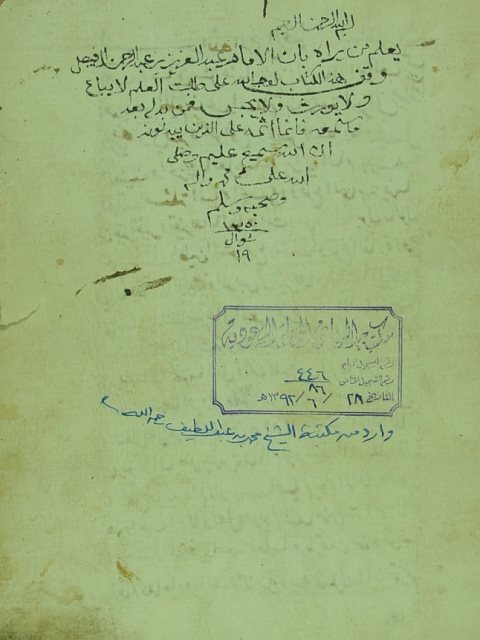 بسم الله الرحمن الرحيم
يعلم من يراه بان الامام عبد العزيز بن عبد الرحمن الفيصل
وقف هذ الكتاب لوجه الله على طلبت العلم لا يباع
ولا يورث ولا فمن بدله بعد
ما سمعه فانما اثمه على الذين يبدلونه
ان الله سميع عليم وصلى
الله على محمد واله
وصحبه وسلم
١٣٥٠
شوال
١٩
مكتبة السعودية
رقم التسجيل العام
٤٤٦
رقم التسجيل الخاص
٨٦
التاريخ ٢٨ / ٦ / ١٣٩٢هـ
وارد من مكتبة الشيخ محمد بن عبد اللطيف رحمه الله